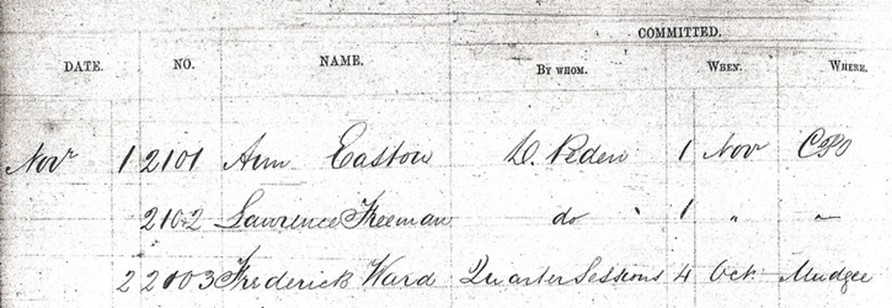 COMMITTED.
DATE. NO. NAME. BY WHOM. WHEN. WHERE.
Novr 1 2101 Ann Easton D. Peden 1 Nov CPO
2102 Lawrence Freeman do 1 " "
2 2103 Frederick Ward Quarter Sessions 4 Oct Mudgee